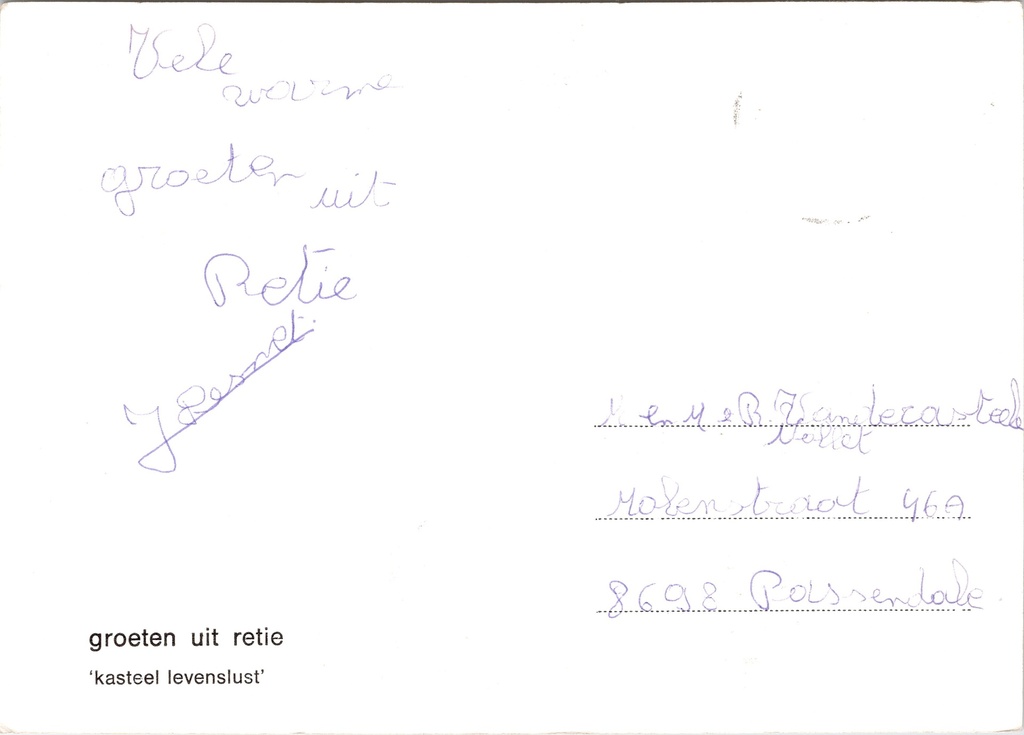 Vele
warme
groeten uit
Retie
J Desmet.
M en M e B. Vandecasteele
Vallet
Molenstraat 46A
8698 Passendale
groeten uit retie
'kasteel levenslust'